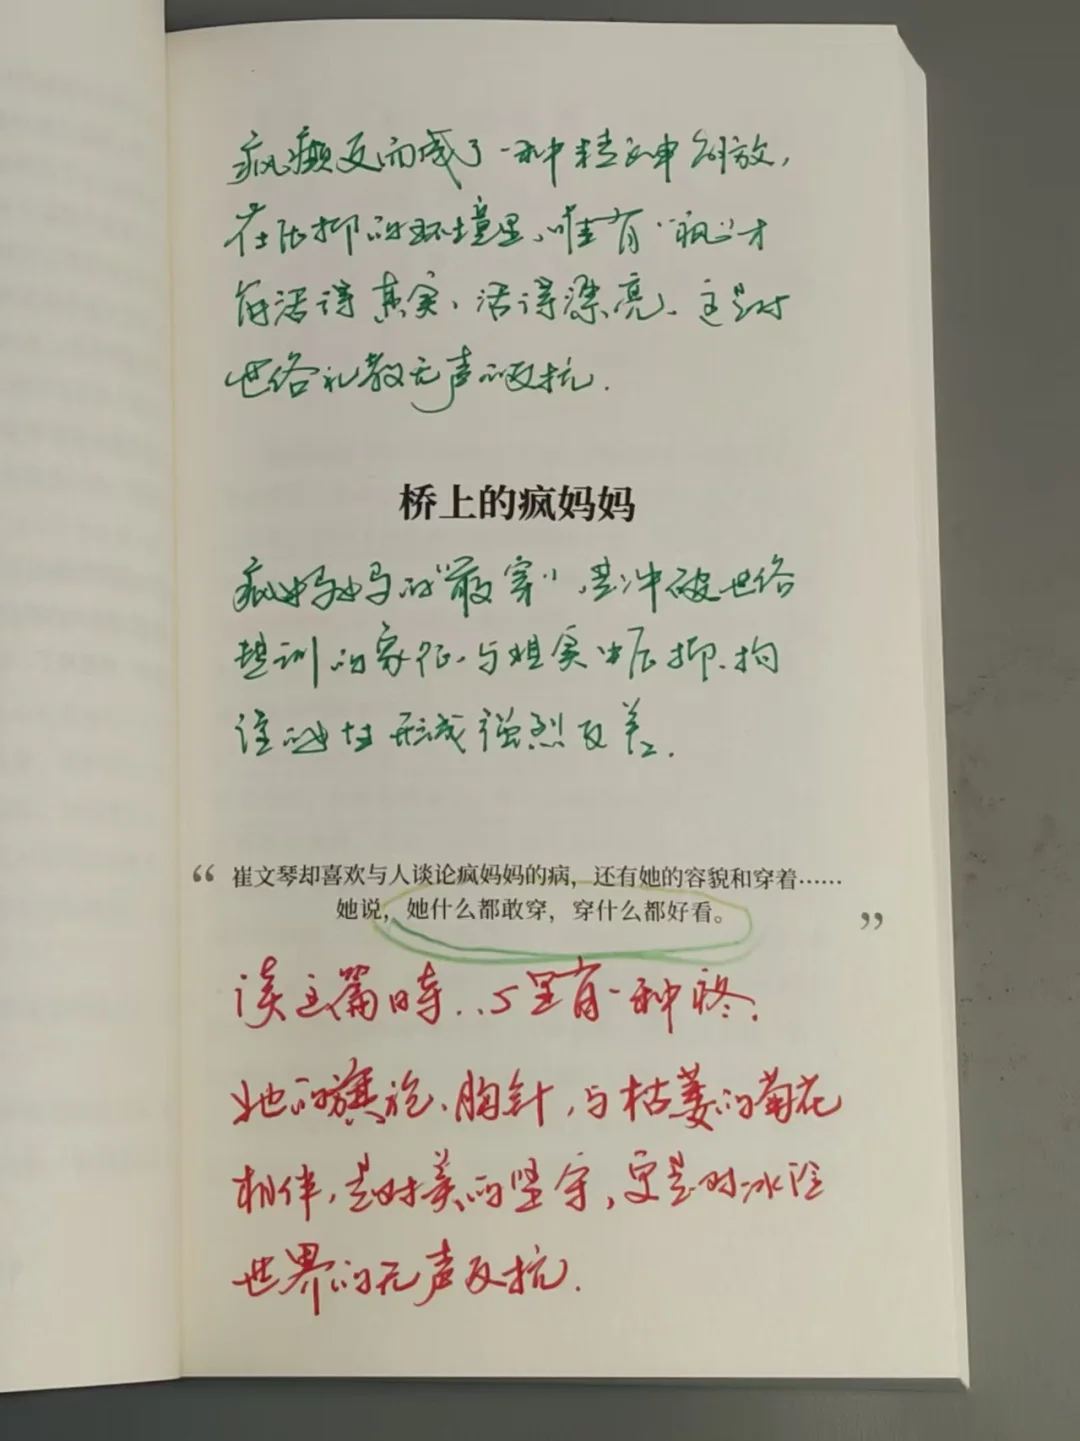 疯癫反而成了一种精神解放，
在压抑的环境里，唯有“疯”才
能活得真实、活得漂亮。这是对
世俗礼教无声的反抗.
桥上的疯妈妈
疯妈妈的“敢穿”，是冲破世俗
规训的象征，与现实中压抑、拘
谨的女性形成强烈反差.
“崔文琴却喜欢与人谈论疯妈妈的病，还有她的容貌和穿着……
她说，她什么都敢穿，穿什么都好看。”
读这篇时，心里有一种疼.
她的旗袍、胸针，与枯萎的菊花
相伴，是对美的坚守，更是对冰冷
世界的无声反抗.